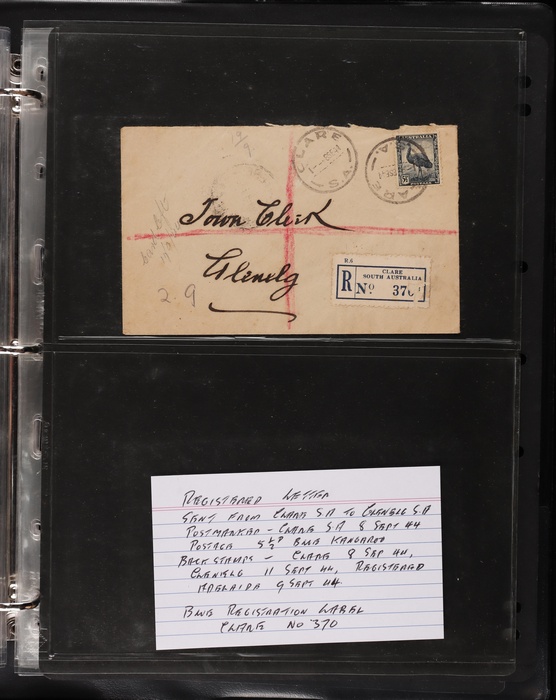 CLARE
S.A.
AUSTRALIA
Town Clerk
Glenelg
2 9
R6
CLARE
SOUTH AUSTRALIA
R No 370
REGISTERED LETTER
SENT FROM CLARE S.A TO GLENELG S.A
POSTMARKED - CLARE S.A 8 SEPT 44
POSTAGE 5 1/2 BLUE KANGAROO
BACK STAMPS - CLARE 8 SEP 44,
GLENELG 11 SEPT 44, REGISTERED
ADELAIDE 9 SEPT 44
BLUE REGISTRATION LABEL
CLARE NO 370